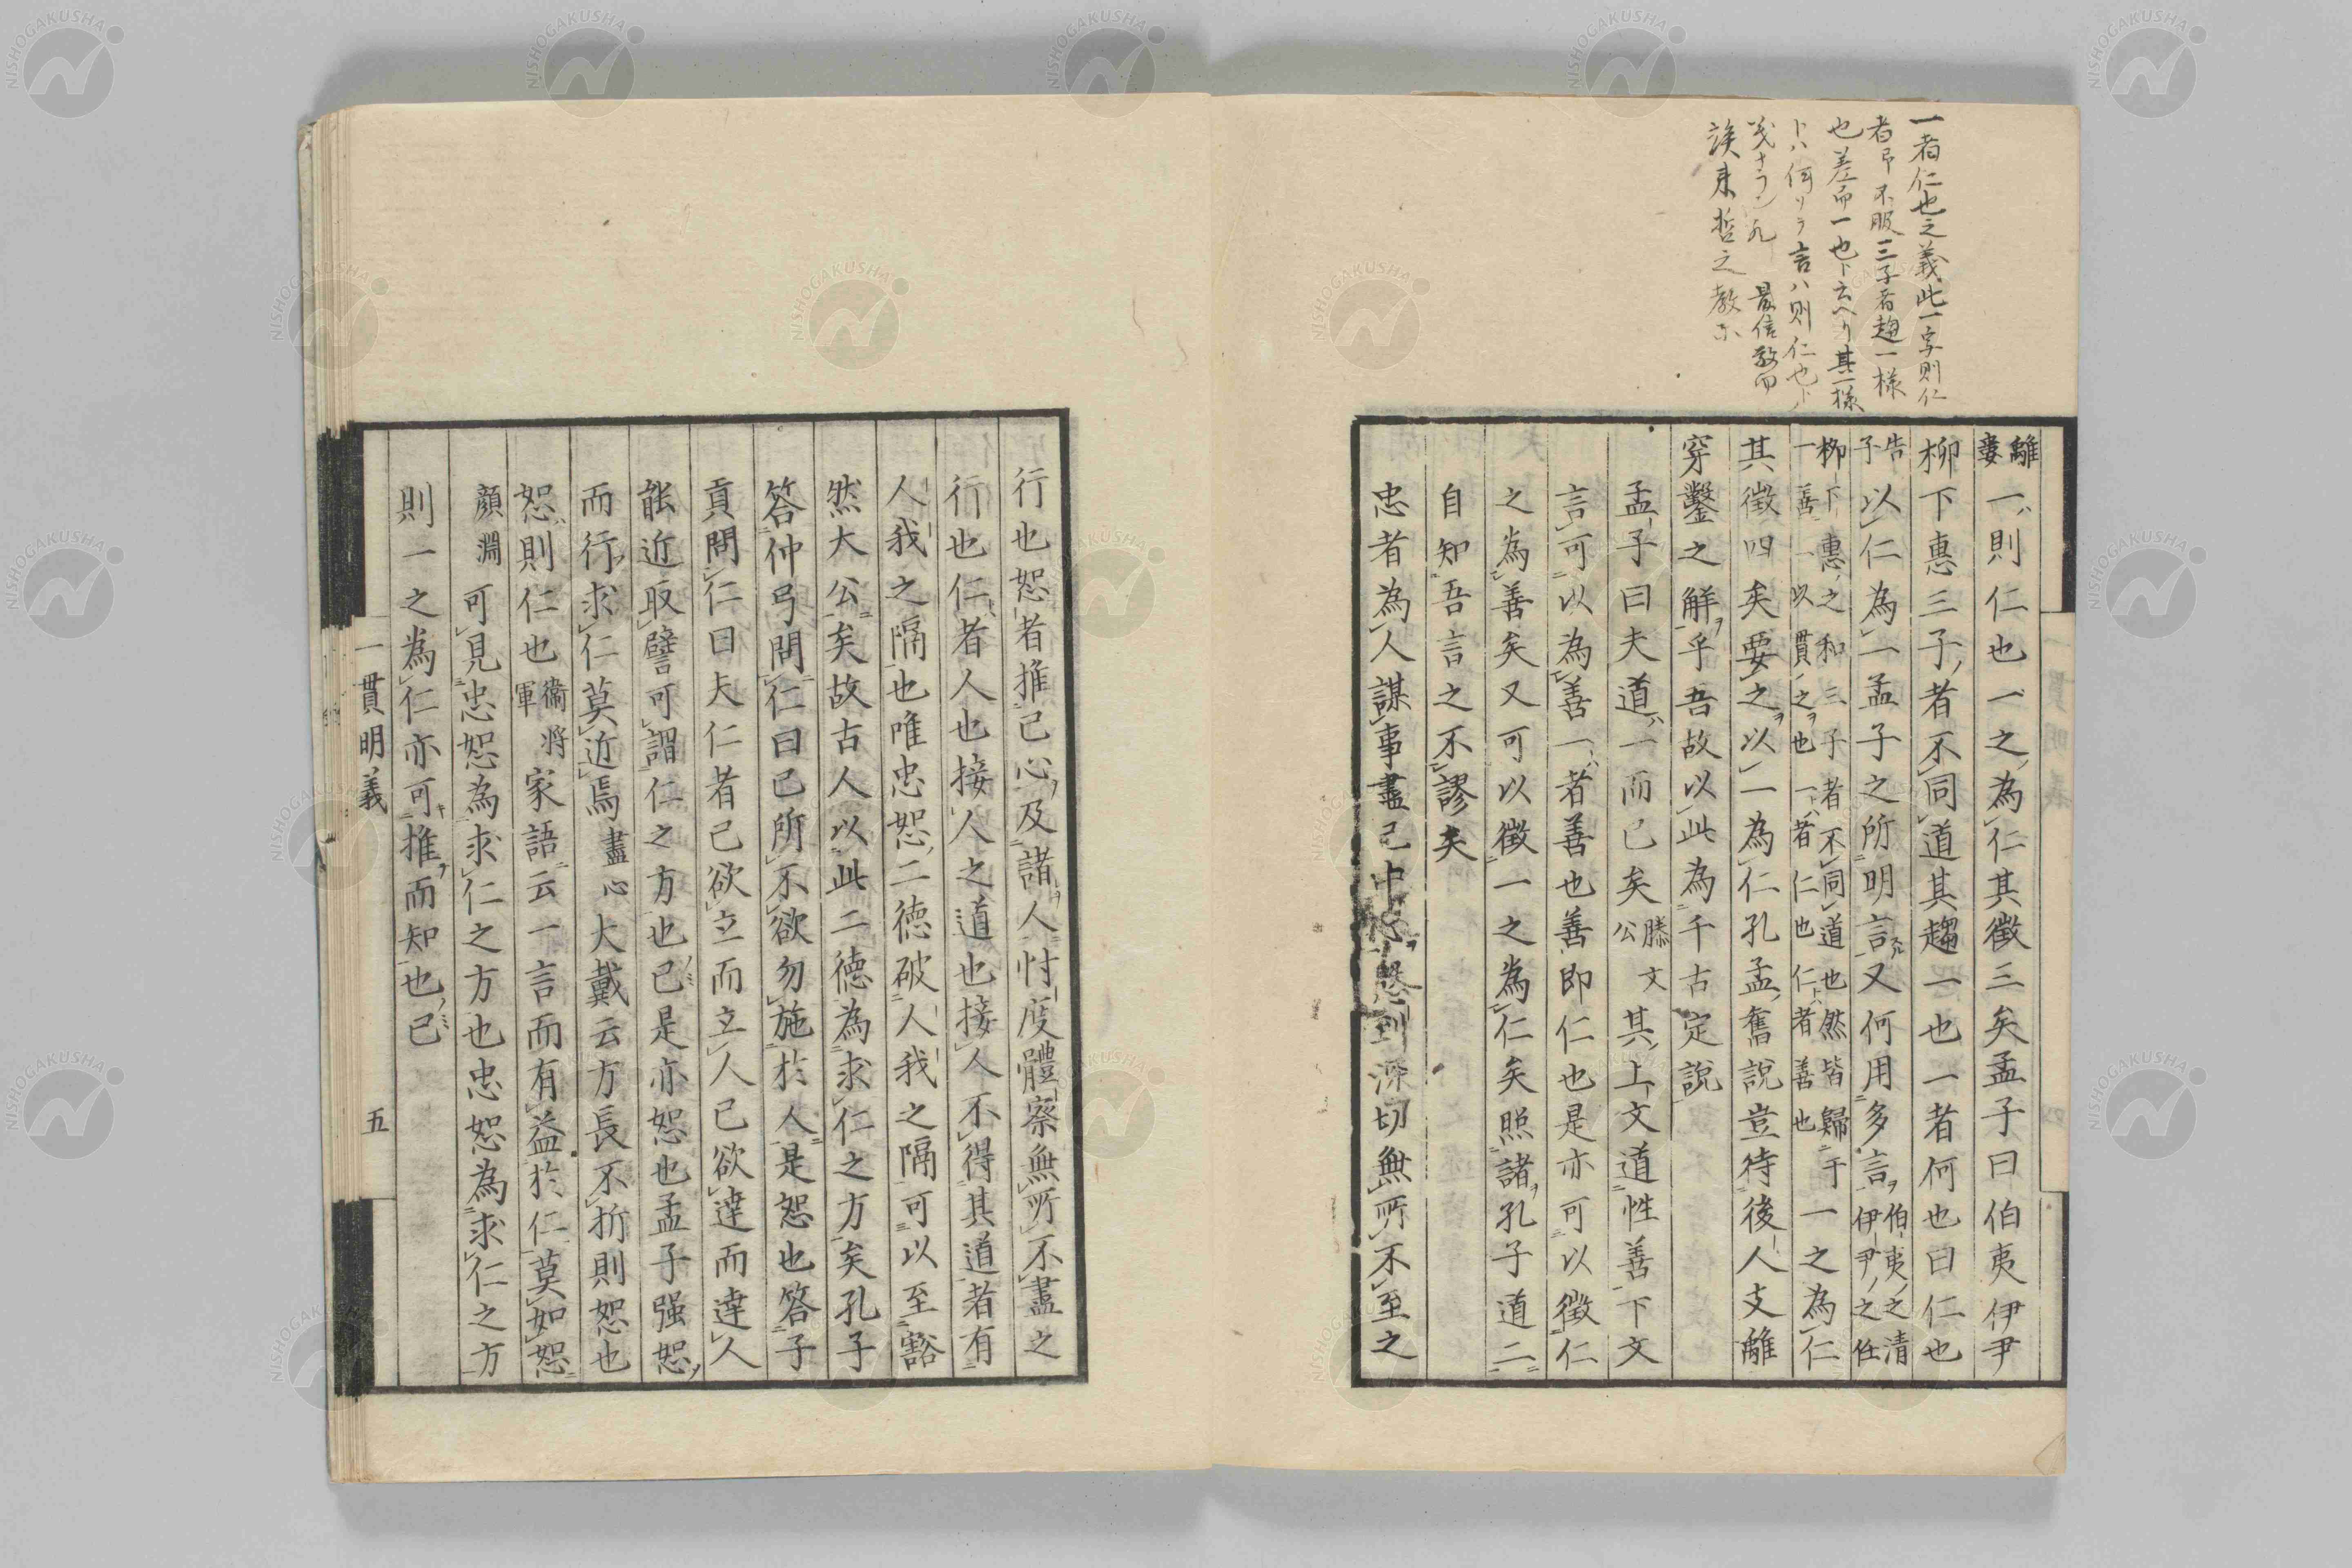 一者仁也之義此一字則仁
者弔不服三子者趨一樣
也差而一也ト云ヘリ其一樣
 トハ何ソヲ言ハ則仁也ト
最信
誤来哲之教
離婁一ハ則仁也一之為仁其徵三矣孟子曰伯夷伊尹
柳下惠三子ノ者不同道其趨一也一者何也曰仁也
告子以仁為一孟子之所明言又何用多言ヲ伯夷ノ之清伊尹ノ之任
柳下惠ノ之和三子者不同道也然皆歸于一之為仁
一善一以貫ノ之ヲ也一トハ者仁也仁トハ者善也
其徵四矣要之ヲ以一為仁孔孟ノ舊說豈待後人支離
穿鑿之解ヲ乎吾故以此為千古定說
孟子曰夫道ハ一而已矣滕文公其上文道性善下文
言可以為善一ハ者善也善即仁也是亦可以徵仁
之為善矣又可以徵一之為仁矣照諸ヲ孔子道二
自知吾言之不謬矣
忠者為人謀事盡己中心ヲ懇到深切無所不至之
行也恕者推己心ヲ及諸ヲ人忖度體察無所不盡之
行也仁者人也接人之道也接人不得其道者有
人我之隔也唯忠恕ノ二德破人我之隔可以至豁
然大公矣故古人以此二德為求仁之方矣孔子
答仲弓問仁曰己所不欲勿施於人是恕也答子
貢問仁曰夫仁者己欲立而立人己欲達而達人
能近取譬可謂仁之方也已是亦恕也孟子强恕ヲ
而行求仁莫近焉盡心大戴云方長不折則恕也
恕ハ則仁也衞將軍家語云一言而有益於仁莫如恕
顏淵可見忠恕為求仁之方也忠恕為求仁之方
則一之為仁亦可推ヲ而知也已
一貫明義
五